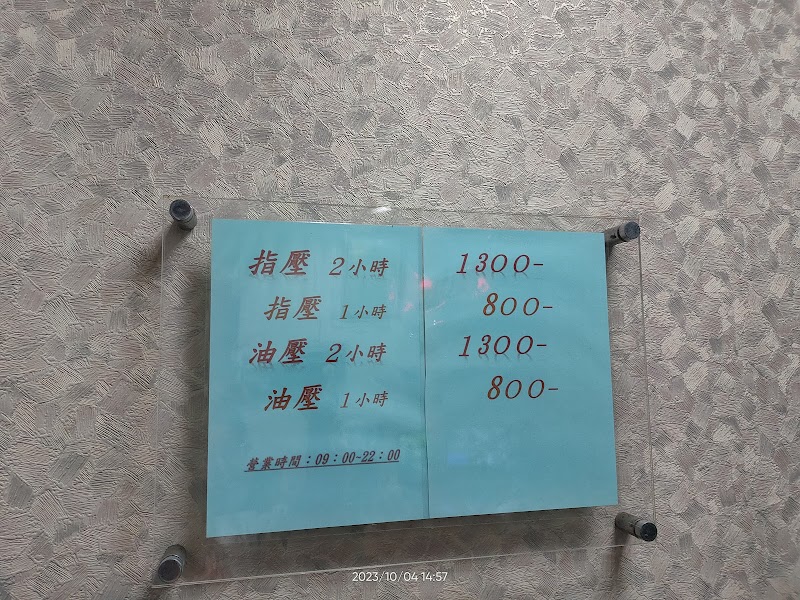 指壓 2小時 1300-
指壓 1小時 800-
油壓 2小時 1300-
油壓 1小時 800-
營業時間：09：00~22：00
2023/10/04 14:57